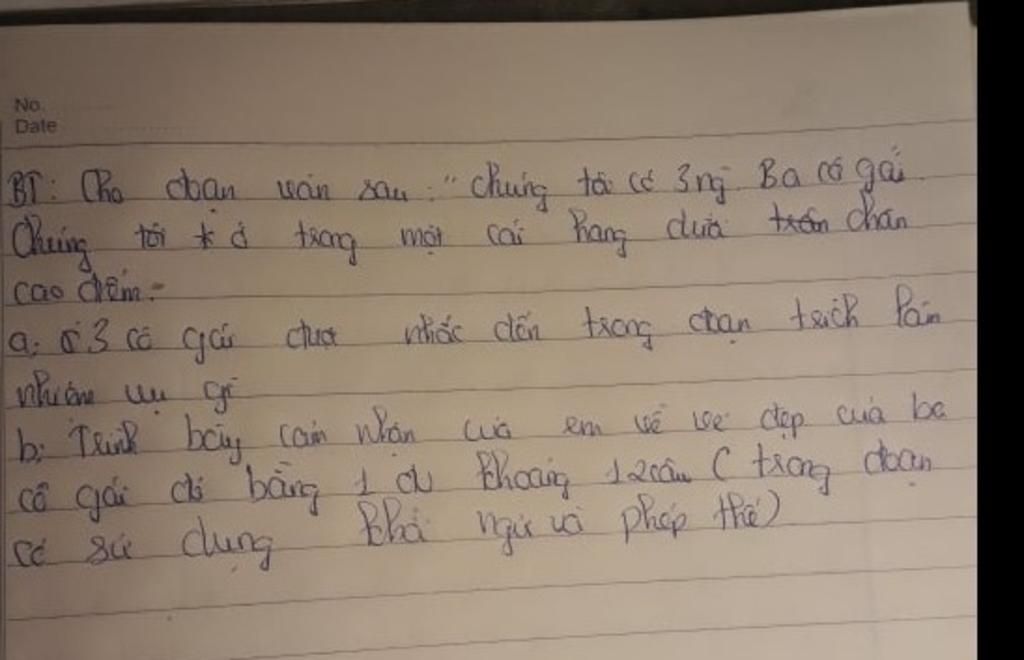 No.
Date
BT: Cho đoạn văn sau: "Chúng tôi có 3 ng. Ba cô gái.
Chúng tôi ở trong một cái hang dưới chân
cao điểm."
a: 3 cô gái được nhắc đến trong đoạn trích làm
nhiệm vụ gì
b: Trình bày cảm nhận của em về vẻ đẹp của ba
cô gái đó bằng 1 đv khoảng 12 câu ( trong đoạn
có sử dụng khởi ngữ và phép thế)